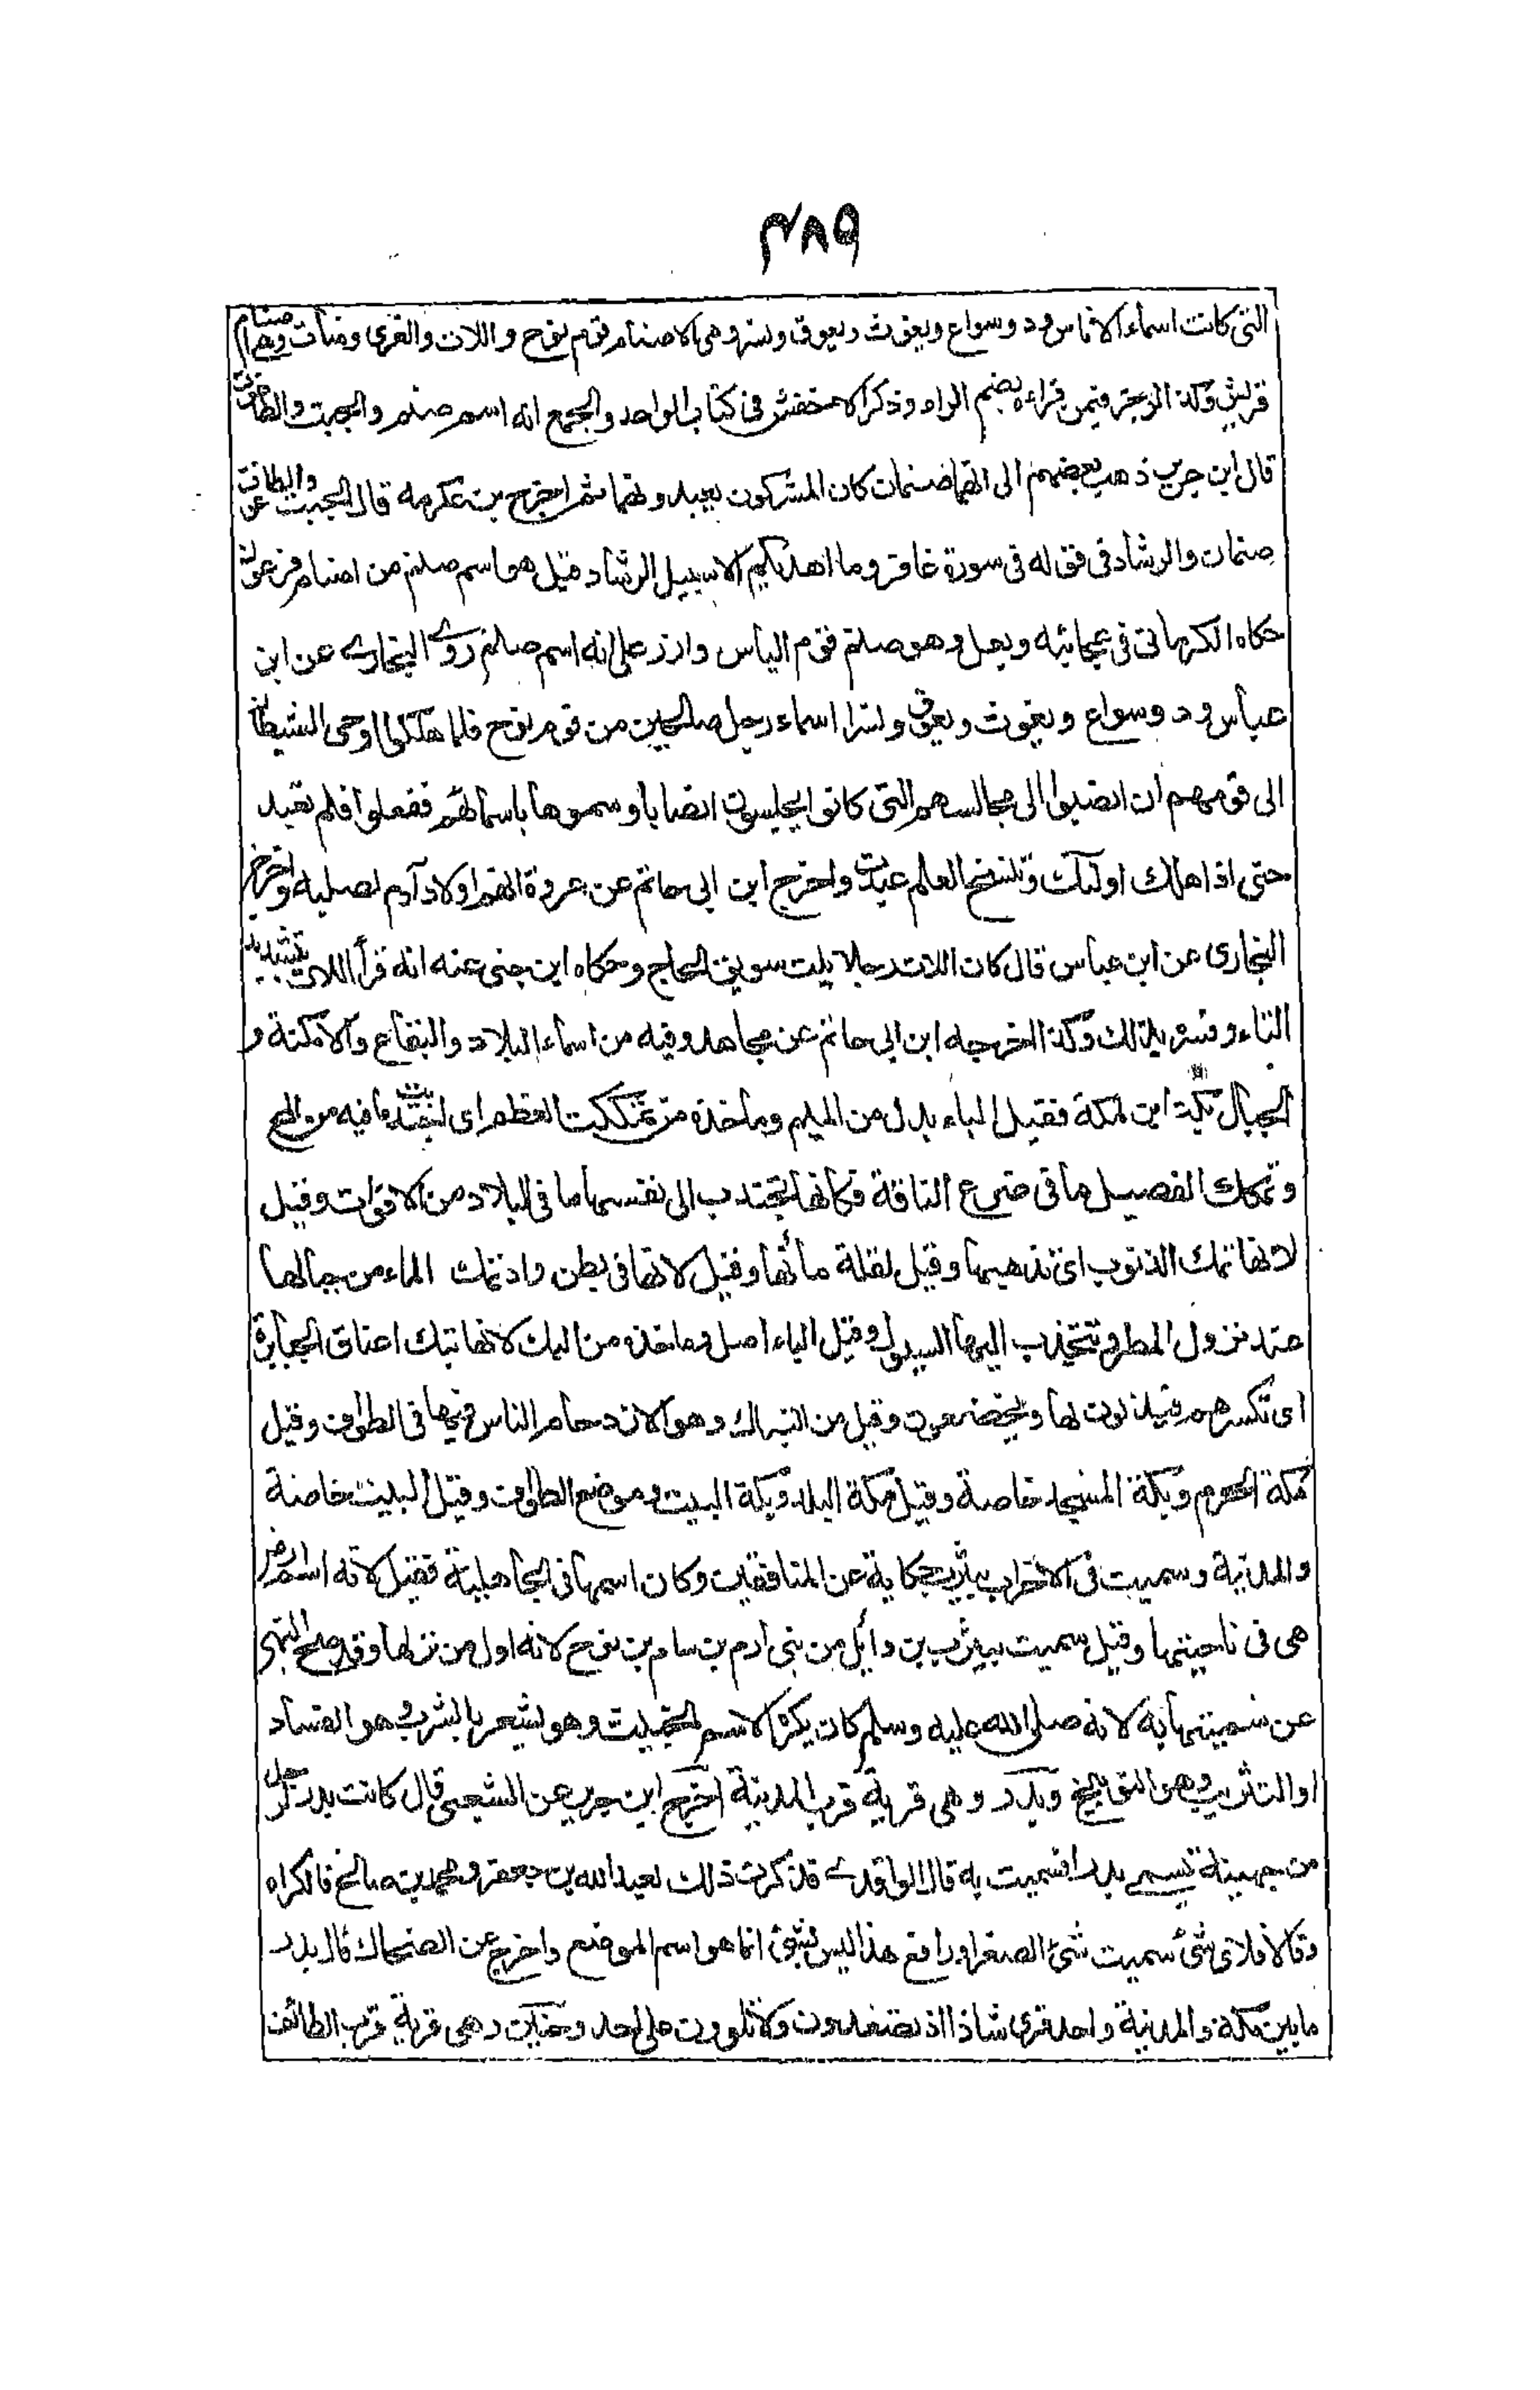 ٣٨٩
التى كانت اسماء الاناس ود وسواع ويغوث ويعوق ونسر وهى الاصنام قوم نوح واللات والعزى ومنات وهى اصنام
قريش وكذا الرجز فيمن قراءه بضم الراء وذكر الاخفش فى كتاب الواحد والجمع انه اسم صنم والجبت والطاغوت
قال ابن جرير ذهب بعضهم الى انهما صنمان كان المشركون يعبدونهما ثم اخرج عن عكرمه قال الجبت والطاغوت
صنمان والرشاد فى قوله فى سورة غافر وما اهديكم الا سبيل الرشاد قيل هو اسم صنم من اصنام فرعون
حكاه الكرمانى فى عجائبه وبعل وهو صنم قوم الياس وازر على انه اسم صنم روى البخارى عن ابن
عباس ود وسواع ويغوث ويعوق ونسرا اسماء رجل صالحين من قوم نوح فلما هلكوا اوحى الشيطان
الى قومهم ان انصبوا الى مجالسهم التى كانوا يجلسون انصابا وسموها باسمائهم ففعلوا فلم تعبد
حتى اذا هلك اولئك وتنسخ العلم عبدت واخرج ابن ابى حاتم عن عروة انهم اولاد آدم لصلبه واخرج
البخارى عن ابن عباس قال كان اللات رجلا يلت سويق الحاج وحكاه ابن جنى عنه انه قرأ اللات بتشديد
التاء وفسره بذلك وكذا اخرجه ابن ابى حاتم عن مجاهد وفيه من اسماء البلاد والبقاع والامكنة و
الجبال بكة اسم لمكة فقيل الباء بدل من الميم وماخذه من تمككت العظم اى اجتذبت ما فيه من المخ
وتمكك الفصيل ما فى ضرع الناقة فكانها تجتذب الى نفسها ما فى البلاد من الاقوات وقيل
لانها تمك الذنوب اى تذهبها وقيل لقلة مائها وقيل لانها فى بطن واد تمك الماء من جبالها
عند نزول المطر وتنجذب اليها السيول وقيل الباء اصل وماخذه من البك لانها تبك اعناق الجبابرة
اى تكسرهم فيذلون لها ويخضعون وقيل من التباك وهو الازدحام الناس فيها فى الطواف وقيل
مكة الحرم وبكة المسجد خاصة وقيل مكة البلد وبكة البيت وموضع الطواف وقيل البيت خاصة
والمدينة وسميت فى الاحزاب بيثرب حكاية عن المنافقين وكان اسمها فى الجاهلية فقيل لانه اسم ارض
هى فى ناحيتها وقيل سميت بيثرب بن وائل من بنى ارم بن سام بن نوح لانه اول من نزلها وقد صح النهى
عن تسميتها به لانه صلى الله عليه وسلم كان يكره الاسم الخبيث وهو يشعر بالثرب وهو الفساد
او التثريب وهو التوبيخ وبدر وهى قرية قرب المدينة اخرج ابن جرير عن الشعبى قال كانت بدر لرجل
من جهينة يسمى بدرا فسميت به قال الواقدى فذكرت ذلك لعبد الله بن جعفر ومحمد بن صالح فانكراه
وقالا فلاى شئ سميت شئ الصفراء ورابغ هذا ليس بشئ انما هو اسم الموضع واخرج عن الضحاك قال بدر
ما بين مكة والمدينة واحد قرى شاذا اذ تصعدون ولا تلوون على احد وحنين وهى قرية قرب الطائف